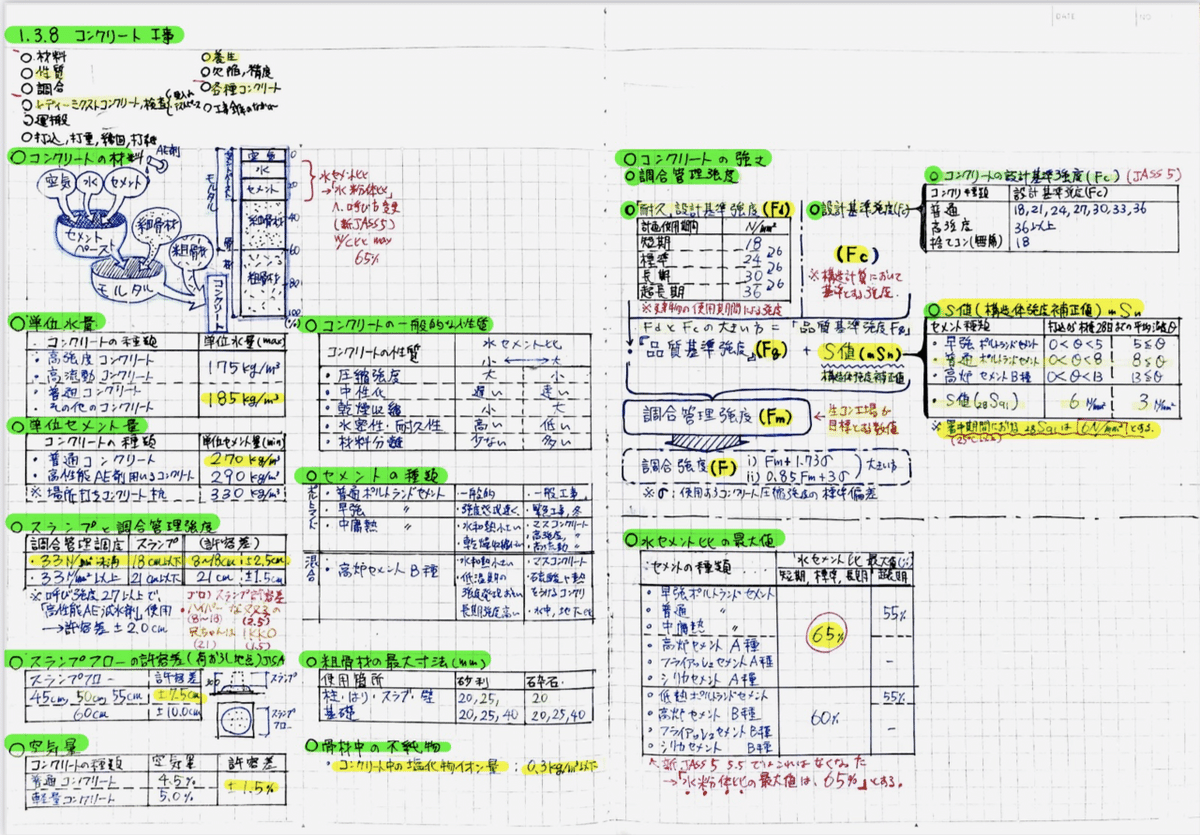 1.3.8 コンクリート工事
○材料
○性質
○調合
○レディーミクストコンクリート,検査
○運搬
○打込,打重,締固,打継
○養生
○欠陥,精度
○各種コンクリート
○コンクリートの材料
AE剤
空気 水 セメント
セメントペースト
細骨材
粗骨材
モルタル
コンクリート
セメントペースト
モルタル
空気
水
セメント
細骨材
粗骨材
0
20
40
60
80
100
(%)
水セメント比
→「水粉体比」
へ呼び方変更
(新JASS5)
W/C比 max
65%
○単位水量
・コンクリートの種類 単位水量(max)
・高強度コンクリート
・高流動コンクリート
175kg/m³
・普通コンクリート
・その他のコンクリート
185kg/m³
○単位セメント量
コンクリートの種類 単位セメント量(min)
・普通コンクリート 270kg/m³
・高性能AE剤用いるコンクリート 290kg/m³
※場所打ちコンクリート杭 330kg/m³
○スランプと調合管理強度
調合管理調度 スランプ (許容差)
・33N/mm²未満 18cm以下 8~18cm ±2.5cm
・33N/mm²以上 21cm以下 21cm ±1.5cm
※呼び強度27以上で、
「高性能AE減水剤」使用
→許容差±2.0cm
ゴロ)スランプ許容差
(8~18) (2.5)
兄ちゃんは IKKO
(21) (1.5)
○スランプフローの許容差(荷おろし地点)JISA
スランプフロー 許容差
45cm, 50cm, 55cm ±7.5cm
60cm ±10.0cm
300
スランプ
スランプフロー
○空気量
コンクリートの種類 空気量 許容差
普通コンクリート 4.5%
軽量コンクリート 5.0%
±1.5%
○コンクリートの一般的な性質
コンクリートの性質 水セメント比
小 ⟷ 大
・圧縮強度 大 小
・中性化 遅い 速い
・乾燥収縮 小 大
・水密性・耐久性 高い 低い
・材料分離 少ない 多い
○セメントの種類
ポルトランド
・普通ポルトランドセメント ・一般的 ・一般工事
・早強 〃 ・強度発現速く ・緊急工事,冬
・中庸熱 〃 ・水和熱小さい ・マスコンクリート
・乾燥収縮小さい ・高強度, 〃
・高流動 〃
混合
・高炉セメントB種 ・水和熱小さい ・マスコンクリート
・低温期の
強度発現おそい
・長期強度高い ・水中,地下
○粗骨材の最大寸法(mm)
使用箇所 砂利 砕石
柱・はり・スラブ・壁 20,25, 20
基礎 20,25,40 20,25,40
○骨材中の不純物
・コンクリート中の塩化物イオン量:0.3kg/m³以下
○コンクリートの強さ
○調合管理強度
○「耐久」設計基準強度(Fd)
計画使用期間 N/mm²
短期 18
標準 24
長期 30
超長期 36
26
26
26
※建物の使用期間による強度
○設計基準強度(Fc)
(Fc)
※構造計算において
基準とする強圧
FdとFcの大きい方=「品質基準強度Fq」
「品質基準強度」(Fq) + S値(mSn)
構造体強度補正値
調合管理強度(Fm)
←生コン工場が
目標とする数値
調合強度(F) i) Fm+1.73σ
ii) 0.85Fm+3σ
大きい方
※σ:使用するコンクリート圧縮強度の標準偏差
○コンクリートの設計基準強度(Fc) (JASS5)
コンクリート種類 設計基準強度(Fc)
普通 18,21,24,27,30,33,36
高強度 36以上
捨てコン(無筋) 18
○S値(構造体強度補正値)mSn
セメント種類 打込から材齢28日までの平均温度θ
・早強ポルトランドセメント 0<θ<5 5≦θ
・普通ポルトランドセメント 0<θ<8 8≦θ
・高炉セメントB種 0<θ<13 13≦θ
・S値(28S91) 6 N/mm² 3 N/mm²
※暑中期間における28S91は「6N/mm²」とする。
○水セメント比の最大値
セメントの種類 水セメント比最大値(%)
短期,標準,長期 超長期
・早強ポルトランドセメント
・普通 〃
・中庸熱 〃
・高炉セメントA種
・フライアッシュセメントA種
・シリカセメントA種
65%
55%
-
・低熱ポルトランドセメント
・高炉セメントB種
・フライアッシュセメントB種
・シリカセメントB種
60%
55%
-
※新JASS5 5.5ではこれはなくなった
→「水粉体比の最大値は、65%」とする。